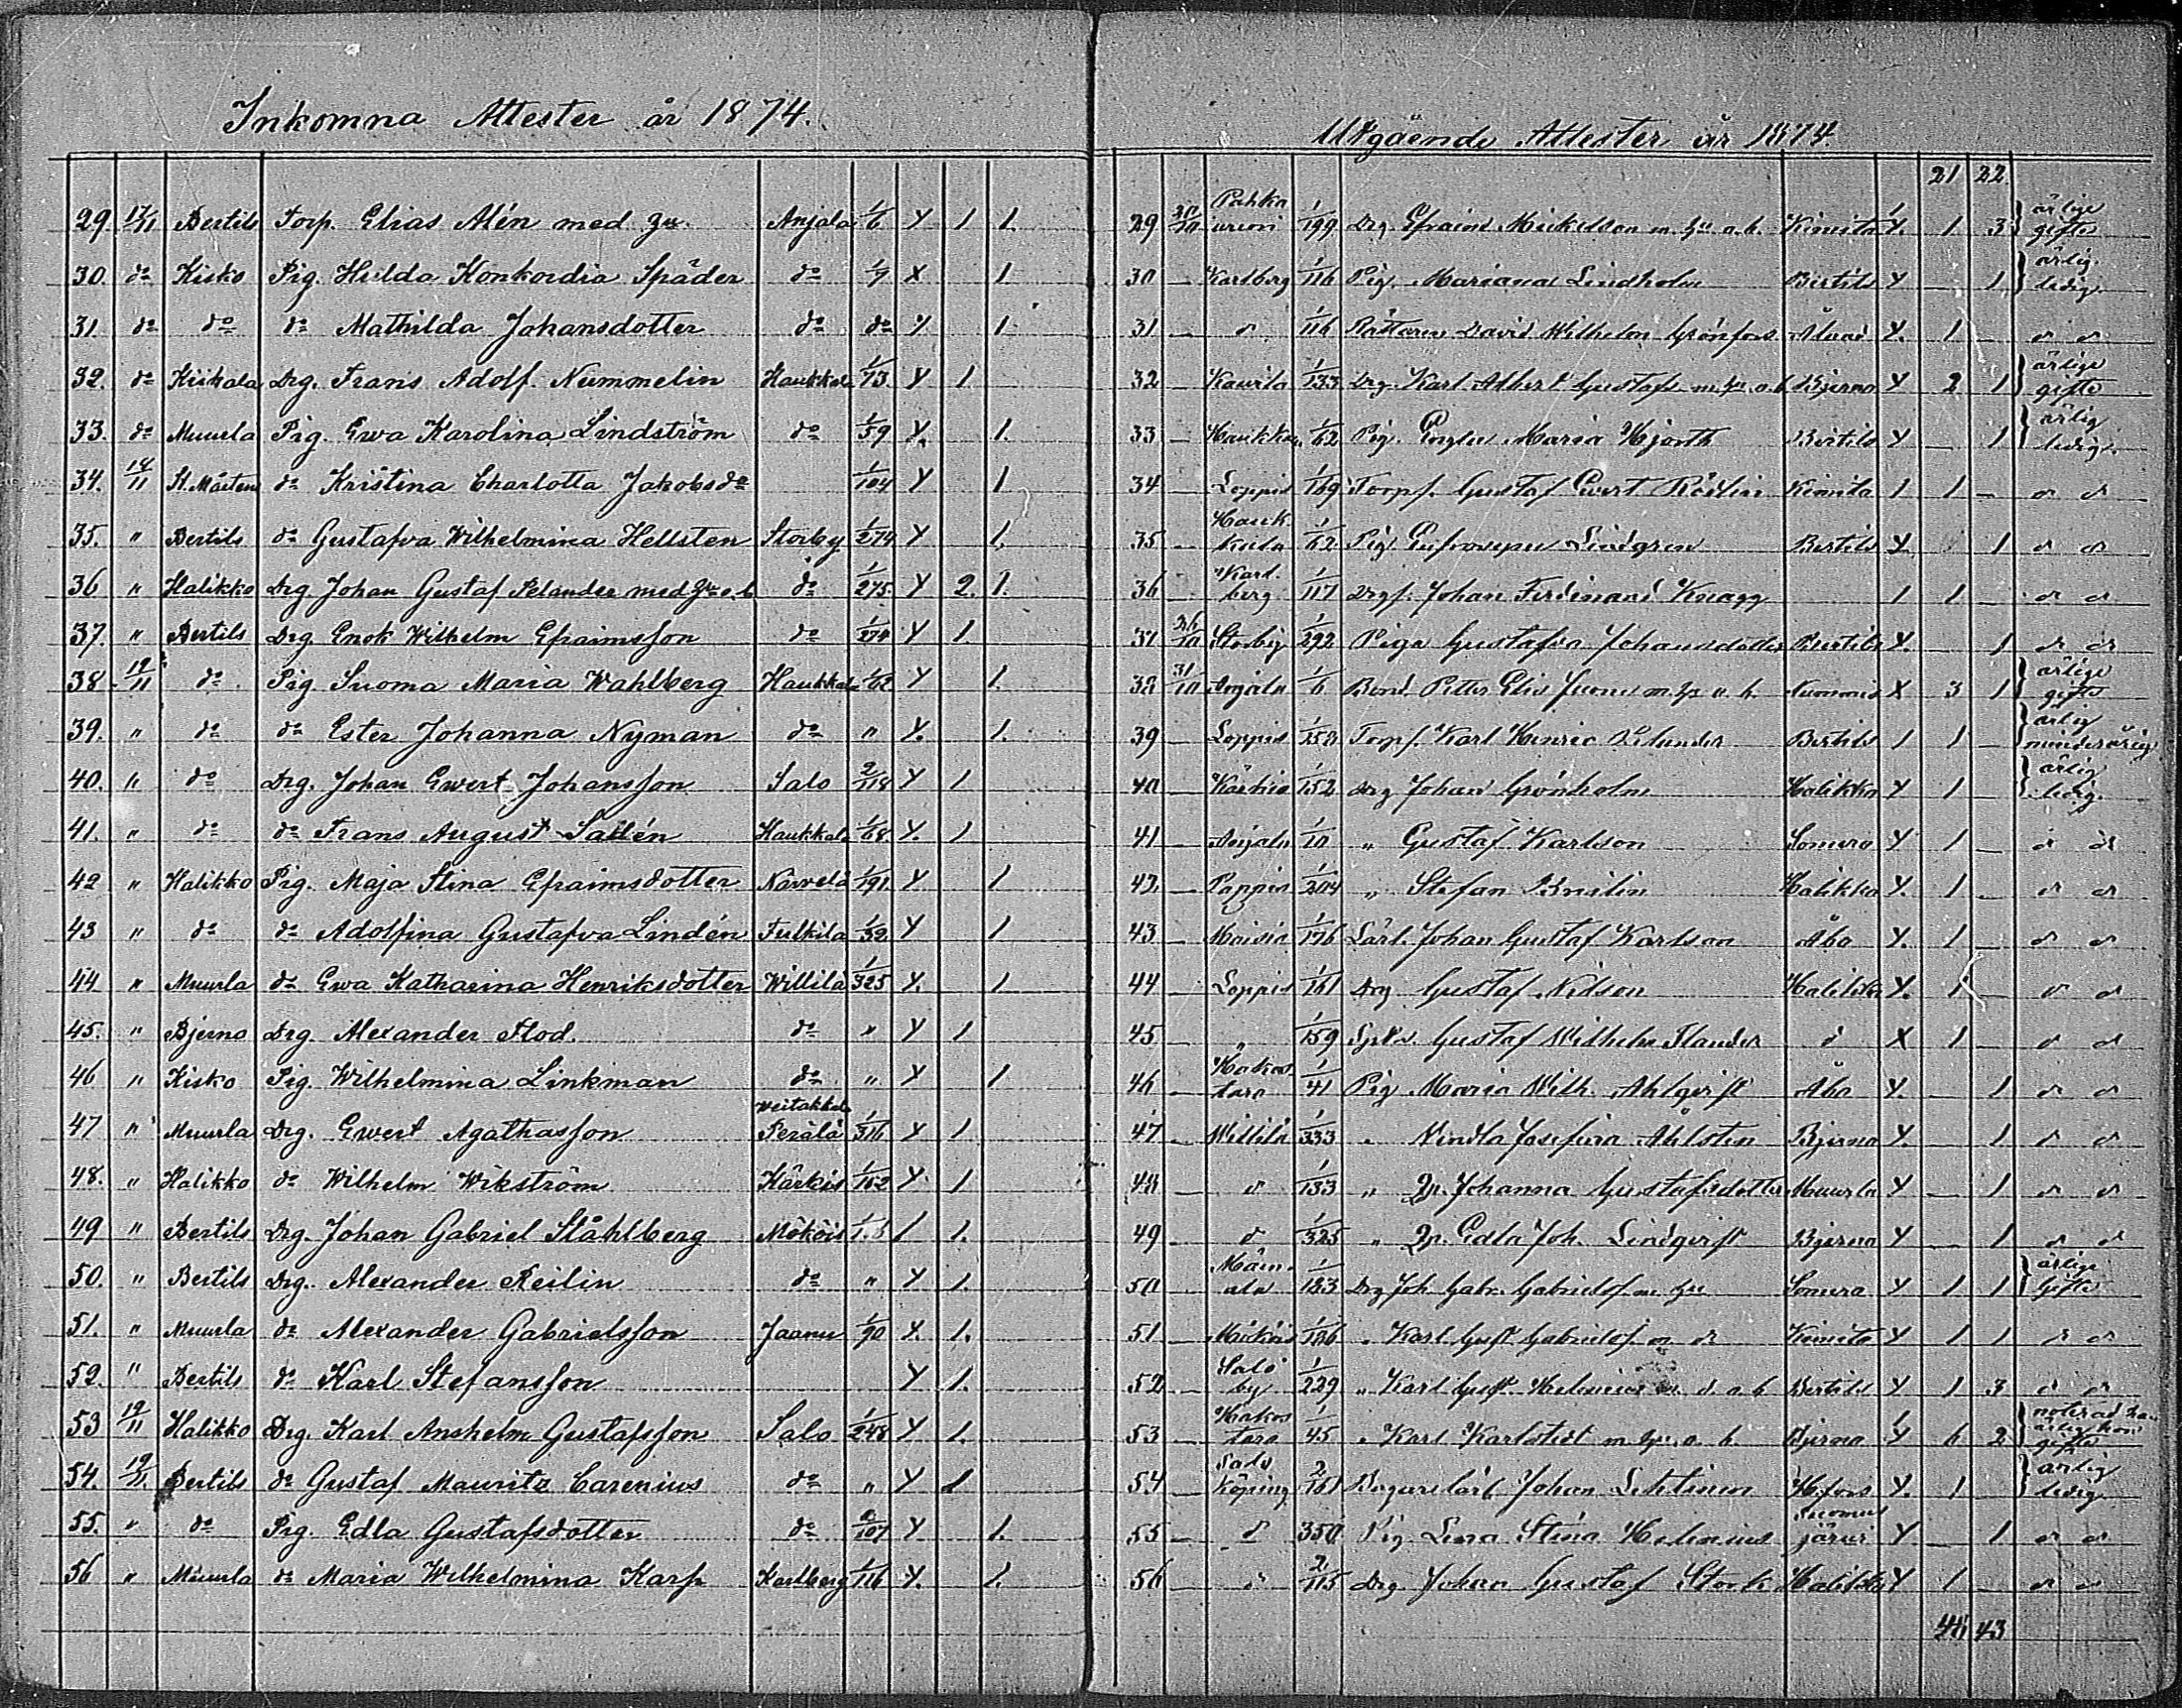 Inkomna Attester år 1874.
29. 17/11 Bertils Torp. Elias Alén med hu. Anjala 1/6 Y 1 1.
30. do Kisko Pig. Hulda Konkordia Späder do 1/9 X 1
31. do do do Mathilda Johansdotter do do Y. 1
32. do Kiikala Drg. Frans Adolf Nummelin Haukkala 1/73 Y 1
33. do Muurla Pig. Ewa Karolina Lindström do 1/59 Y. 1.
34. 18/11 St. Mårtens do Kristina Charlotta Jakobsdr 1/104 Y 1
35. " Bertils do Gustafva Wilhelmina Hellsten Storby 1/274 Y. 1.
36 " Halikko Drg. Johan Gustaf Pelander med hu o. b do 1/275. Y 2. 1.
37. " Bertils Drg. Enok Wilhelm Efraimsson do 1/274 Y 1.
38. 19/11 do Pig. Suoma Maria Wahlberg Haukkala 1/62 Y 1.
39. " do do Ester Johanna Nyman do " Y. 1.
40. " do Drg. Johan Ewert Johansson Salo 2/118 Y 1
41. " do do Frans August Sallén Haukkala 1/68. Y. 1
42 " Halikko Pig. Maja Stina Efraimsdotter Karvelä 1/191 Y 1
43 " do do Adolfina Gustafva Lindén Tulkila 1/32 Y 1
44 " Muurla do Ewa Katharina Henriksdotter Willilä 1/325 Y. 1
45. " Bjerno Drg. Alexander Flod. do " Y 1
46 " Kisko Pig. Wilhelmina Linkman do " Y 1
47 " Muurla Drg. Ewert Agathasson Veitakkala Perälä 1/316 Y 1
48. " Halikko do Wilhelm Wikström Kärkis 1/152 Y. 1
49 " Bertils Drg. Johan Gabriel Ståhlberg Mököis 1 1.
50. " Bertils Drg. Alexander Reilin do " Y 1.
51. " Muurla do Alexander Gabrielsson Jaanu 1/90 Y. 1.
52. " Bertils do Karl Stefansson Y 1.
53 19/11 Halikko Drg. Karl Anshelm Gustafsson Salo 1/248 Y 1.
54. 19/11. Bertils do Gustaf Mauritz Carenius do " Y 1
55. " do Pig. Edla Gustafsdotter do 2/107 Y. 1.
56 " Muurla do Maria Wilhelmina Karp Karlberg 1/116 Y. 1.
Utgående Attester år 1874.
21 22.
29 30/10 1/199 Drg. Efraim Mickelsson m. hu o. b. Kimito Y. 1 3 ärlige gifte
30 — Karlberg 1/116 Pig. Mariana Lindholm Bertils Y 1 ärlig. ledig.
31 — d 1/116 David Wilhelm Grönfors Y. 1 d d
32 Kaurila 1/133 Drg. Karl Albert Gustafs m. hu o. b Bjerno Y 2 1 ärlige gifte
33 — Haukka 1/62 Pig. Maria Hjorth Bertils Y — 1 ärlig ledig.
34 — Loppis 1/169 Torpf. Gustaf Evert Kimito 1 1 — d d
35 — Haukkala 1/62 Pig. Lindgren Bertils Y. 1 d d
36 Karlberg 1/117 Drgf. Johan Ferdinand Knagg 1 1 — d d
37 26/10 Storby 1/292 Piga Gustafva Johansdotter Bertils Y. 1 d d
38 31/10 Anjala 1/6 Bond. Petter Elis m. hu o. b. Nummis X 3 1 ärlige gifte
39 — Loppis Torpf. Karl Henric Bertils 1 1 — ärlig minderårig
40 — Kärkis 1/152 Drg Johan Grönholm Halikko Y 1 — ärlig ledig.
41 — Anjala 1/10 " Gustaf Karlsson Somero Y 1 — d d
42. — 1/204 " Stefan Halikko Y. 1 — d d
43 — Maisia 1/176 Lärl. Johan Gustaf Karlsson Åbo Y. 1 — d d
44 — Loppis 1/161 Drg Gustaf Nilson Halikko Y. 1 — d d
45 " 1/159 Gustaf Wilhelm d X 1 d d
46 — Hakastaro 1/41 Pig Maria Wilh. Ahlqvist Åbo Y. 1 d d
47 — Willilä 1/333 " Josefina Ahlsten Bjerno Y. 1 d d
48 — d 1/133 " Johanna Gustafsdotter Muurla Y — 1 d d
49 — d 1/325 " Edla Joh. Lindqvist Bjerno Y — 1 d d
50 — 1/183 Drg Joh. Gabr. Gabrielss m. hu Somero Y 1 1 ärlige gifte
51 — Mököis 1/186 " Karl Gust. Gabrielss m. d Kimito Y 1 1 d d
52 — Salo by 1/229 " Karl Gust. Helenius m. d. o. b Bertils Y 1 3 d d
53 — Hakostaro 1/45 " Karl Karlstedt m. hu. o. b. Bjerno Y 6 2 gifte
54 — Salo Köping 2/161 Johan Lehtinen H.fors Y. 1 — ärlig ledig
55 — d 350 Pig. Lena Stina Helenius Suomusjärvi Y — 1 d d
56 — d 2/115 Drg. Johan Gustaf Stork Halikko Y 1 — d d
44 43